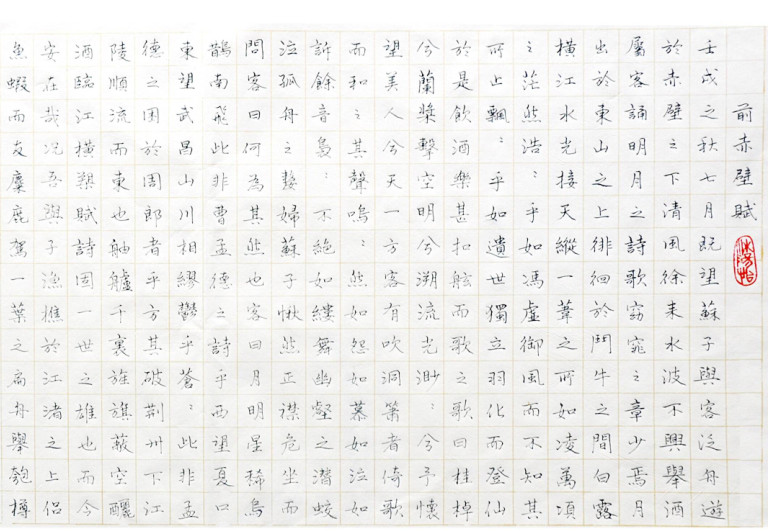 前赤壁賦
壬戌之秋七月既望蘇子與客泛舟遊
於赤壁之下清風徐來水波不興舉酒
屬客誦明月之詩歌窈窕之章少焉月
出於東山之上徘徊於鬥牛之間白露
橫江水光接天縱一葦之所如凌萬頃
之茫然浩：乎如馮虛御風而不知其
所止飄：乎如遺世獨立羽化而登仙
於是飲酒樂甚扣舷而歌之歌曰桂棹
兮蘭槳擊空明兮溯流光渺：兮予懷
望美人兮天一方客有吹洞簫者倚歌
而和之其聲嗚：然如怨如慕如泣如
訴餘音裊：不絕如縷舞幽壑之潛蛟
泣孤舟之嫠婦蘇子愀然正襟危坐而
問客曰何為其然也客曰月明星稀烏
鵲南飛此非曹孟德之詩乎西望夏口
東望武昌山川相繆鬱乎蒼：此非孟
德之困於周郎者乎方其破荊州下江
陵順流而東也舳艫千裏旌旗蔽空釃
酒臨江橫槊賦詩固一世之雄也而今
安在哉況吾與子漁樵於江渚之上侶
魚蝦而友麋鹿駕一葉之扁舟舉匏樽